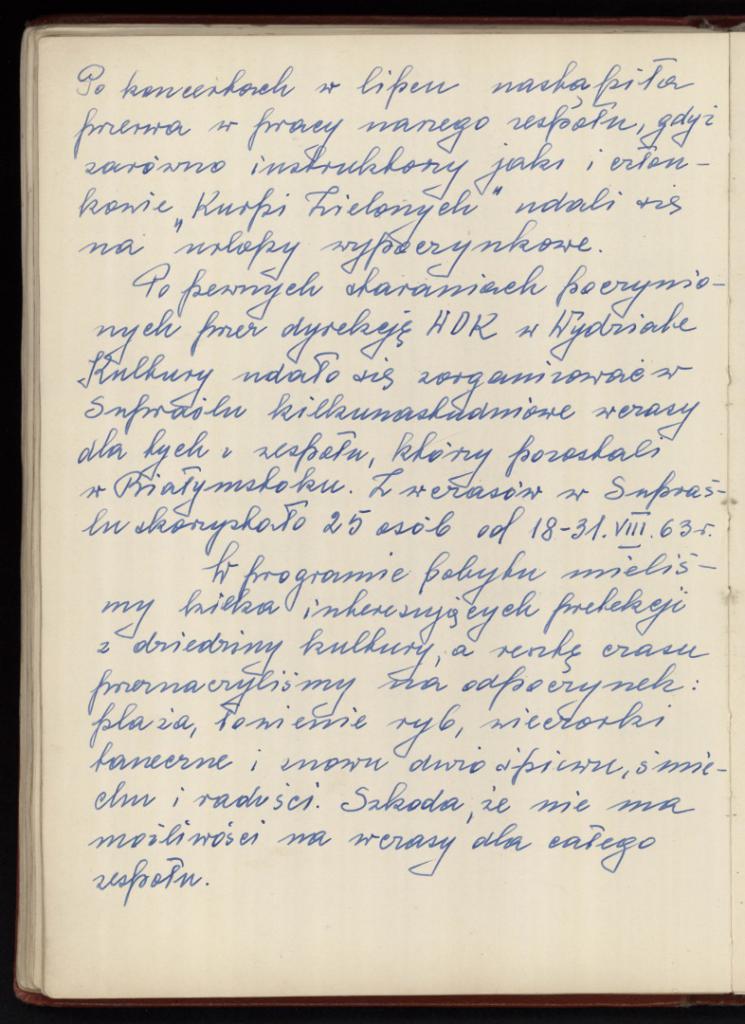 Po koncertach w lipcu nastąpiła
przerwa w pracy naszego zespołu, gdyż
zarówno instruktorzy jako i człon-
kowie „Kurpi Zielonych" udali się
na urlopy wypoczynkowe.
Po pewnych staraniach poczynio-
nych przez dyrekcję WDK w Wydziale
Kultury udało się zorganizować w
Supraślu kilkunastudniowe wczasy
dla tych z zespołu, którzy pozostali
w Białymstoku. Z wczasów w Supraś-
lu skorzystało 25 osób od 18-31.VIII.63r.
W programie pobytu mieliś-
my kilka interesujących prelekcji
z dziedziny kultury, a resztę czasu
przeznaczyliśmy na odpoczynek:
plaża, łowienie ryb, wieczorki
taneczne i znowu dużo śpiewu, śmie-
chu i radości. Szkoda, że nie ma
możliwości na wczasy dla całego
zespołu.